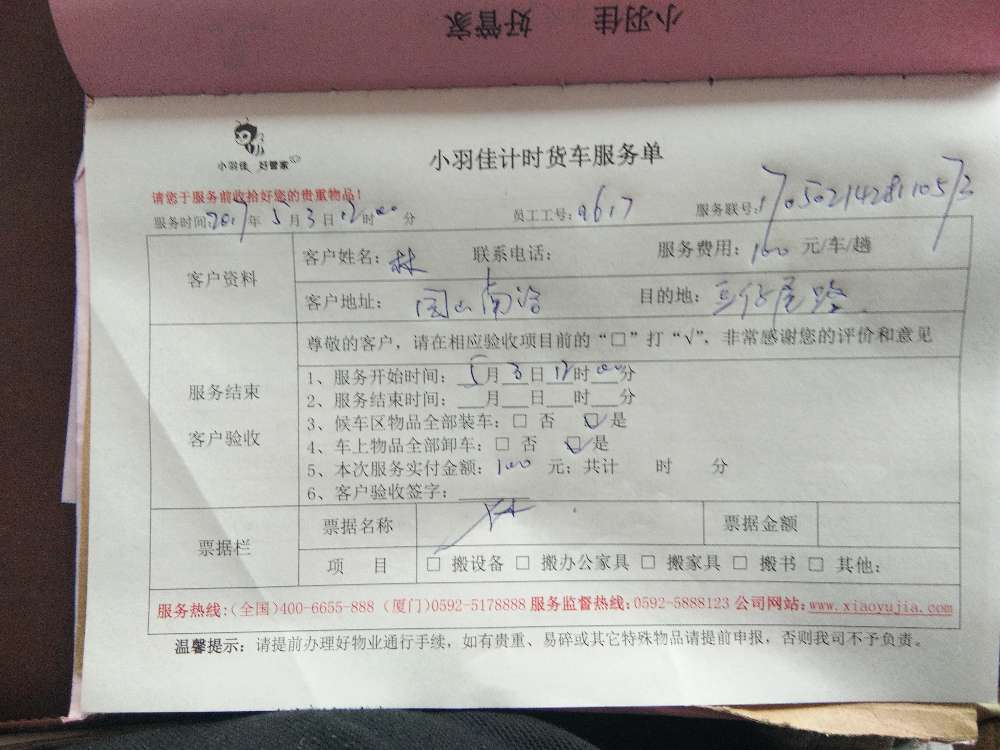 小羽佳 好管家
小羽佳 好管家
小羽佳计时货车服务单
请您于服务前收拾好您的贵重物品！
服务时间:2017年5月3日12时00分 员工工号:9617 服务联号:1705021428110573
客户资料 客户姓名:林 联系电话: 服务费用:100元/车/趟
客户地址: 目的地:豆仔尾路
尊敬的客户，请在相应验收项目前的“□”打“√”，非常感谢您的评价和意见
服务结束
客户验收
1、服务开始时间:5月3日12时00分
2、服务结束时间:___月___日___时___分
3、候车区物品全部装车:□ 否 ☑是
4、车上物品全部卸车:□ 否 ☑是
5、本次服务实付金额:100元；共计 时 分
6、客户验收签字:林
票据栏 票据名称 票据金额
项 目 □ 搬设备 □ 搬办公家具 □ 搬家具 □ 搬书 □ 其他:
服务热线:(全国)400-6655-888 (厦门)0592-5178888 服务监督热线:0592-5888123 公司网站:www.xiaoyujia.com
温馨提示: 请提前办理好物业通行手续，如有贵重、易碎或其它特殊物品请提前申报，否则我司不予负责。